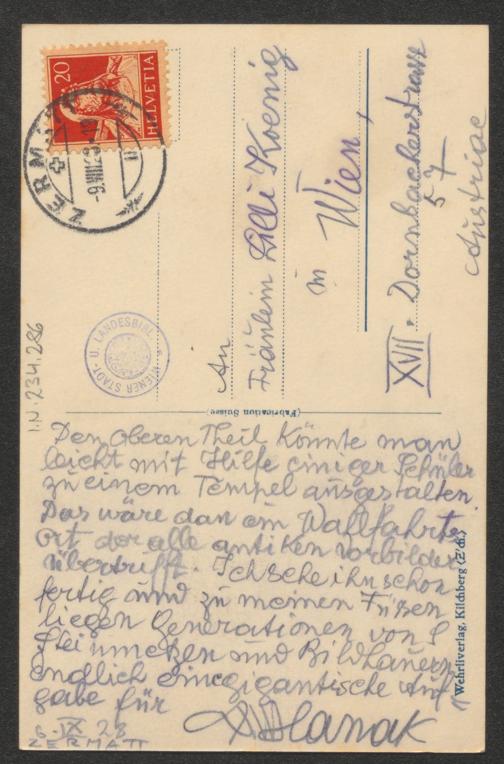 20
HELVETIA
ZERMATT
-9.VIII
An
Fräulein Lilli Koenig
in Wien,
XVII. Dornbacherstrasse
57
Austriae
WIENER STADT- U. LANDESBIBL.
I.N. 234.286
(Fabrication Suisse)
Den oberen Theil könnte man
leicht mit Hilfe einiger Schüler
zu einem Tempel ausgestalten.
Das wäre dan ein Wallfahrts
ort der alle antiken vorbilder
übertrifft. Ich sehe ihn schon
fertig und zu meinen Füsen
liegen Generationen von
Steinmetzen und Bildhauern
endlich eine gigantische Auf
gabe für
A Hanak
6. IX 28
ZERMATT
Wehrliverlag, Kilchberg (Z'ch.)